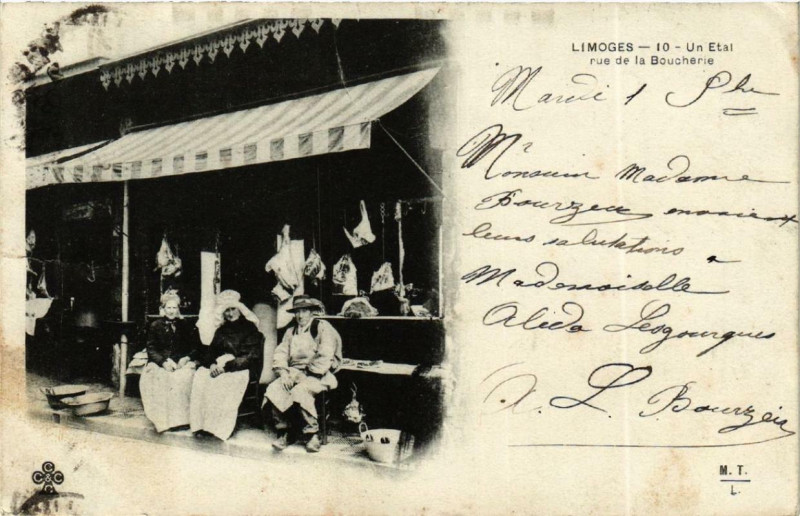 LIMOGES — 10 - Un Etal
rue de la Boucherie
Mardi 1
Monsieur Madame
Bourzeix envoient
leurs salutations a
Mademoiselle
Alida Lesgourgues
A. L. Bourzeix
M. T.
L.
C C C C